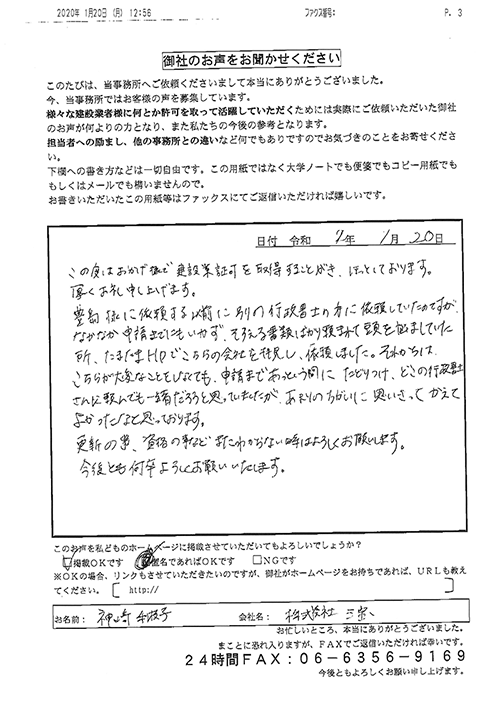 2020年 1月20日（月）12:56 ファクス番号: P. 3
御社のお声をお聞かせください
このたびは、当事務所へご依頼くださいまして本当にありがとうございました。
今、当事務所ではお客様の声を募集しています。
様々な建設業者様に何とか許可を取って活躍していただくためには実際にご依頼いただいた御社
のお声が何よりの力となり、また私たちの今後の参考となります。
担当者への励まし、他の事務所との違いなど何でもありですのでお気づきのことをお寄せくださ
い。
下欄への書き方などは一切自由です。この用紙ではなく大学ノートでも便箋でもコピー用紙でも
もしくはメールでも構いませんので。
お書きいただいたこの用紙等はファックスにてご返信いただければ嬉しいです。
日付 令和 2年 1月 20日
この度はおかげ様で建設業許可を取得することができ、ほっとしております。
厚くお礼申し上げます。
様に依頼する以前に別の行政書士の方に依頼していたのですが、
なかなか申請までにもいかず、そろえる書類ばかり頼まれて頭を悩ましていた
所、たまたまHPでこちらの会社を発見し、依頼しました。それからは
こちらが大変なことをしなくても、申請まであっという間にたどりつけ、どこの行政書士
さんに頼んでも一緒だろうと思っていましたが、あまりの違いに思いきってかえて
よかったなと思っております。
更新の事、資格の事などまたわからない時はよろしくお願いします。
今後とも何卒よろしくお願いいたします。
このお声を私どものホームページに掲載させていただいてもよろしいでしょうか？
□掲載OKです □匿名であればOKです □NGです
※OKの場合、リンクもさせていただきたいのですが、御社がホームページをお持ちであれば、URLも教え
てください。［ http:// ］
お名前: 神崎 会社名: 株式会社
お忙しいところ、本当にありがとうございました。
まことに恐れ入りますが、FAXでご返信いただければ幸いです。
24時間FAX：06-6356-9169
今後ともよろしくお願い申し上げます。